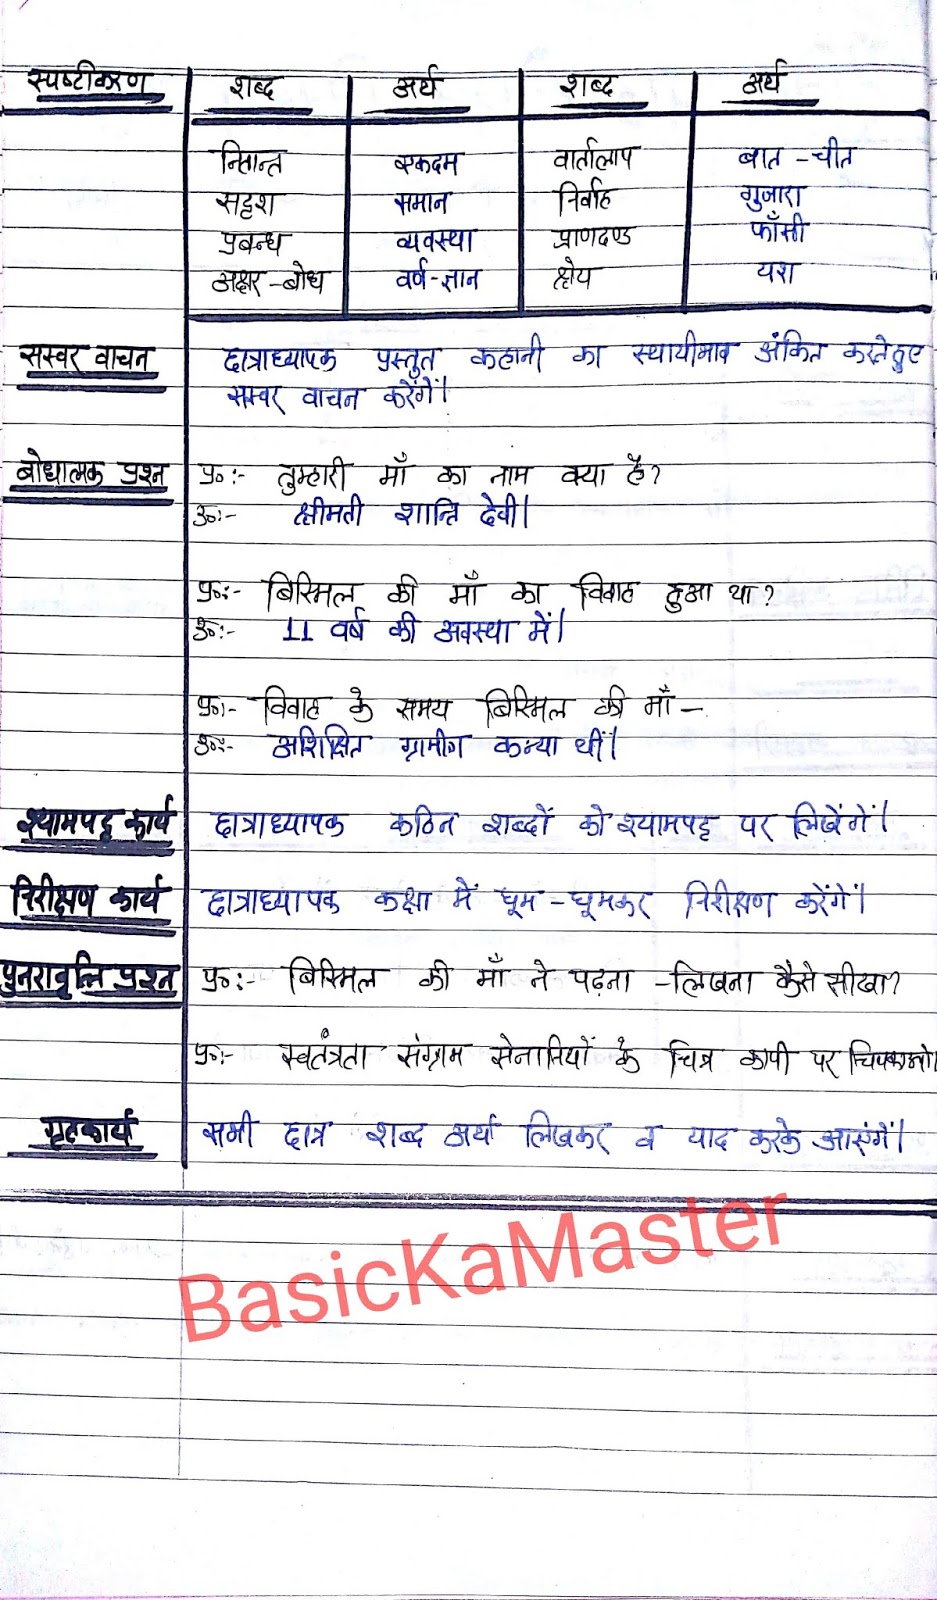 स्पष्टीकरण शब्द अर्थ शब्द अर्थ
नितान्त एकदम वार्तालाप बात-चीत
सदृश समान निर्वाह गुजारा
प्रबन्ध व्यवस्था प्राणदण्ड फाँसी
अक्षर-बोध वर्ण-ज्ञान श्रेय यश
सस्वर वाचन छात्राध्यापक प्रस्तुत कहानी का स्थायीभाव अंकित करते हुए
सस्वर वाचन करेंगें।
बोधात्मक प्रश्न प्र०:- तुम्हारी माँ का नाम क्या है?
उ०:- श्रीमती शान्ति देवी।
प्र०:- बिस्मिल की माँ का विवाह हुआ था?
उ०:- 11 वर्ष की अवस्था में।
प्र०:- विवाह के समय बिस्मिल की माँ -
उ०:- अशिक्षित ग्रामीण कन्या थीं।
श्यामपट्ट कार्य छात्राध्यापक कठिन शब्दों को श्यामपट्ट पर लिखेंगें।
निरीक्षण कार्य छात्राध्यापक कक्षा में घूम-घूमकर निरीक्षण करेंगें।
पुनरावृत्ति प्रश्न प्र०:- बिस्मिल की माँ ने पढ़ना-लिखना कैसे सीखा?
प्र०:- स्वतंत्रता संग्राम सेनानियों के चित्र कापी पर चिपकाओ।
गृहकार्य सभी छात्र शब्द अर्था लिखकर व याद करके आएंगें।
BasicKaMaster